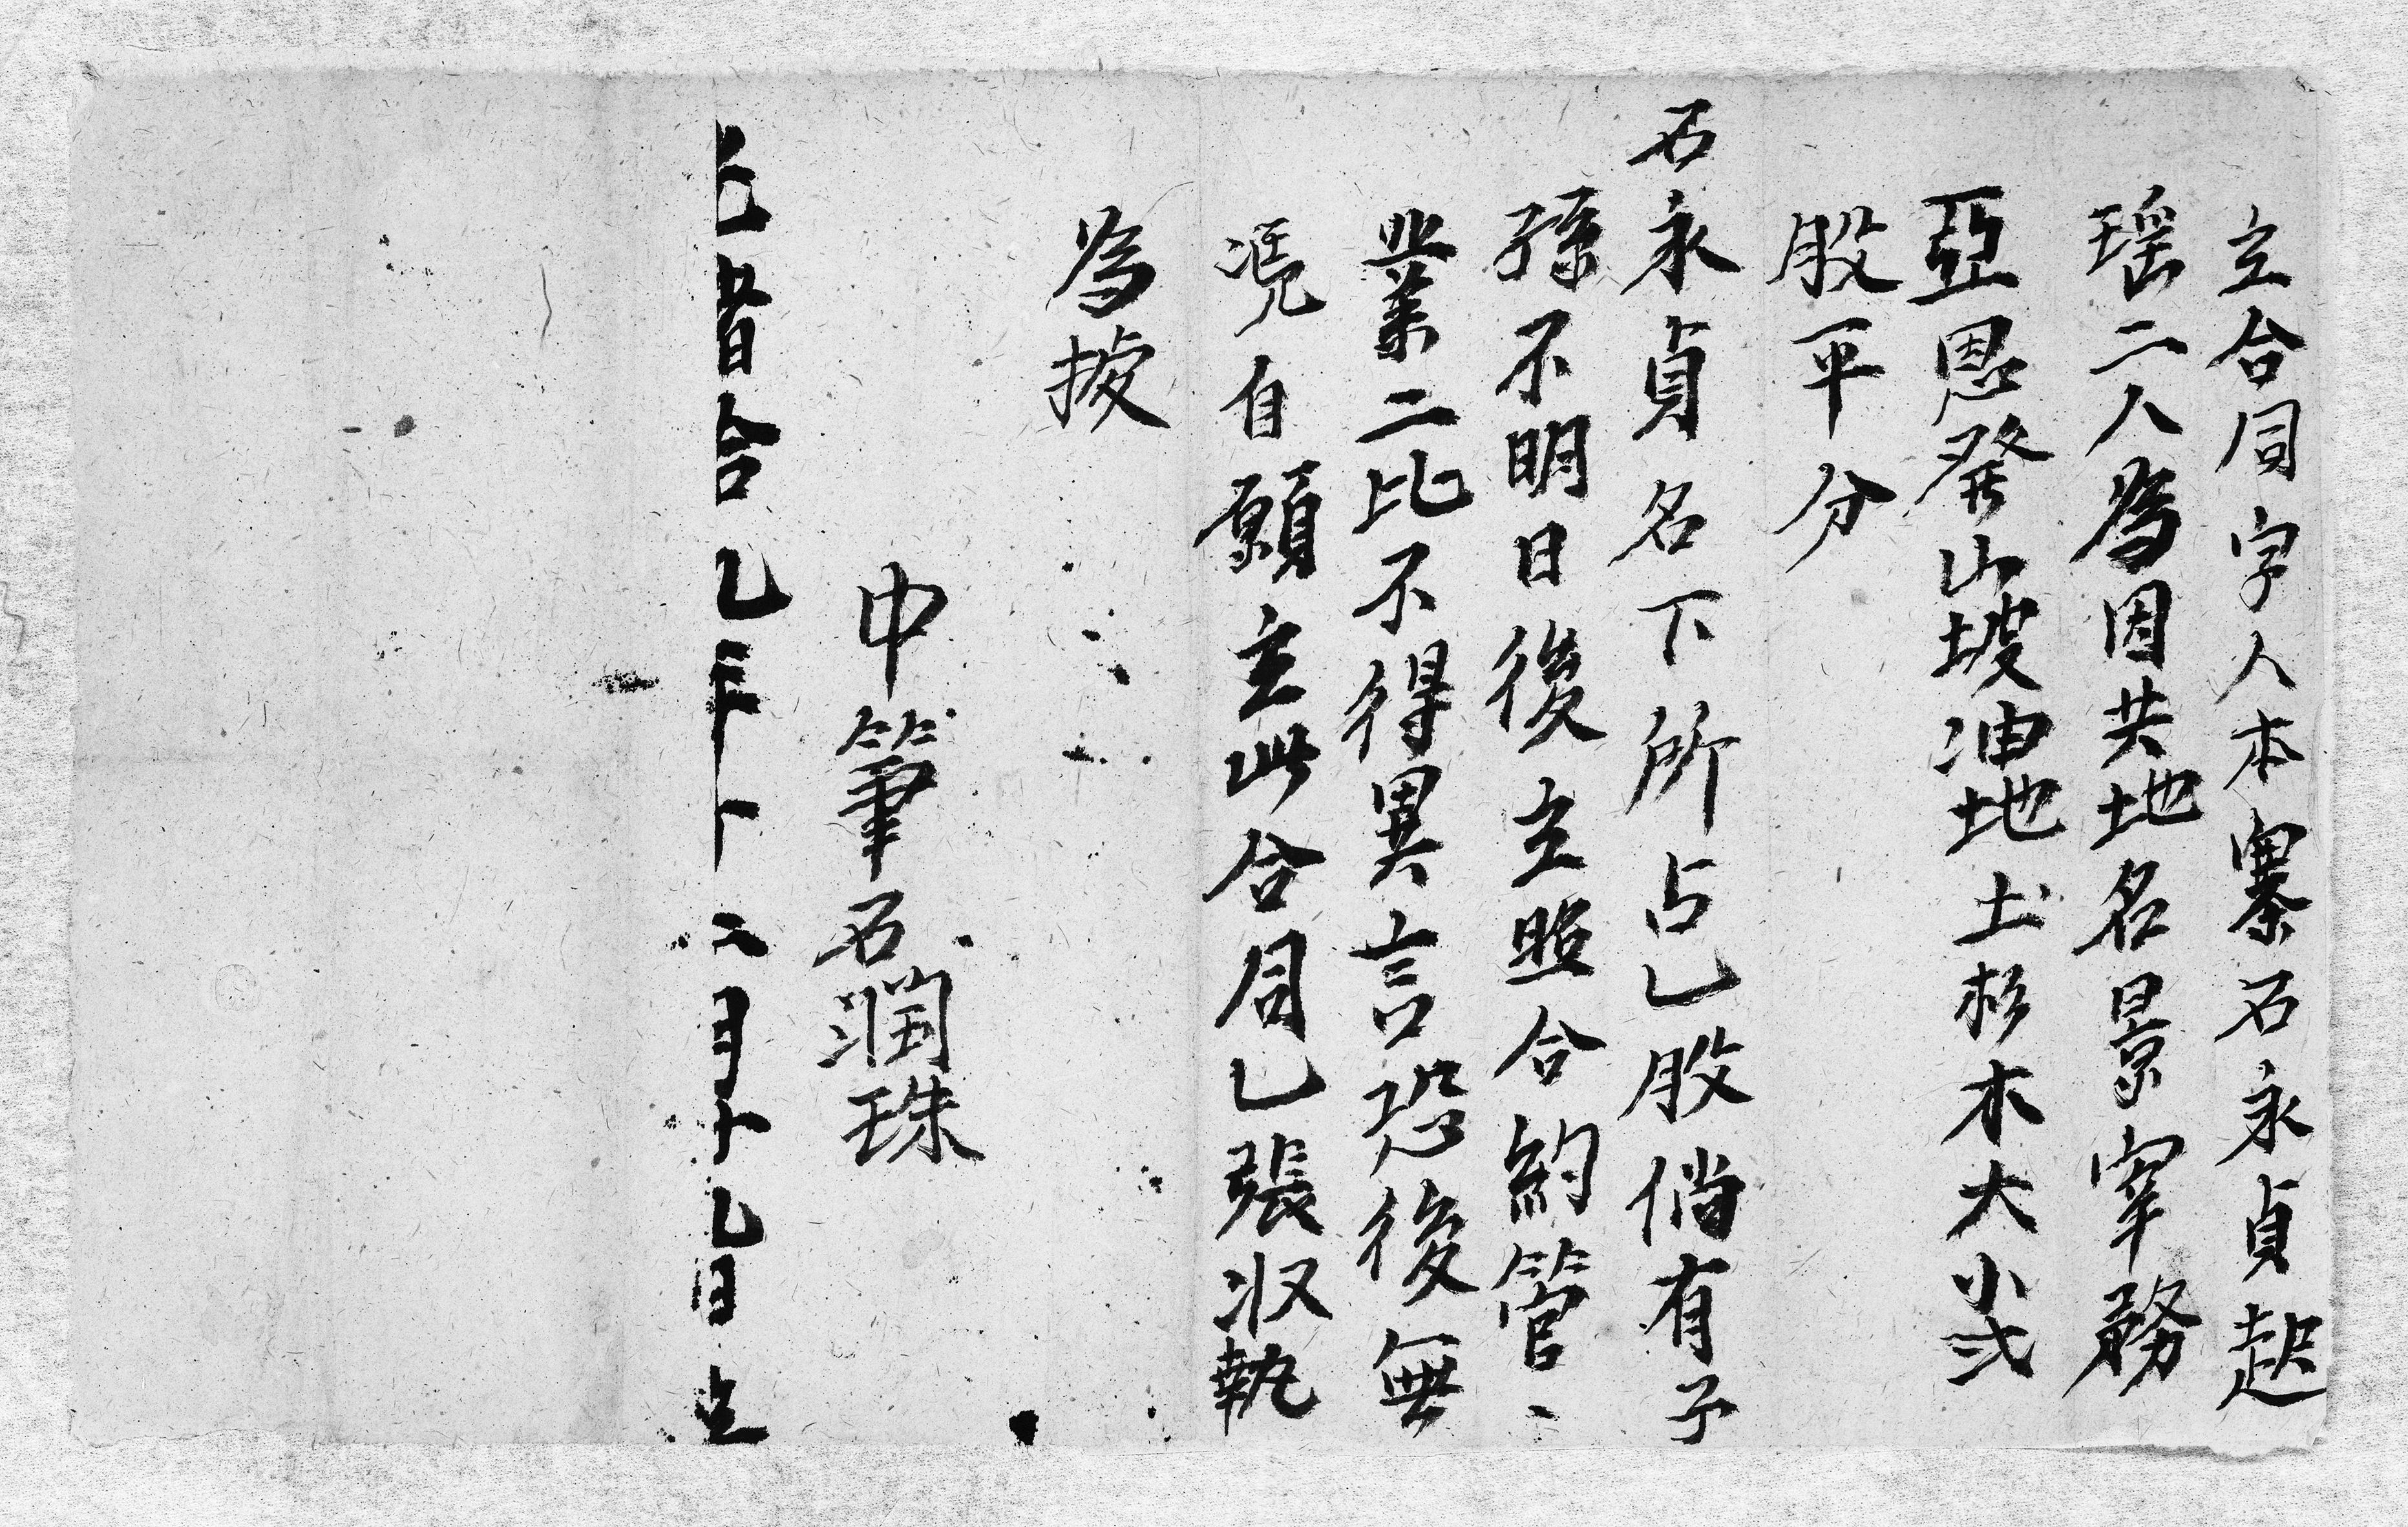 立合同字人本寨石永貞起
瑶二人為因共地名景宰務
亞恩發山坡油地土杉木大小弍
股平分
石永貞名下所占乚股倘有子
孫不明日後立照合約管丶
業二比不得異言恐後無
凴自願立此合同乚張収執
為拠
中筆石潤珠
合乚年十二月十乚日立